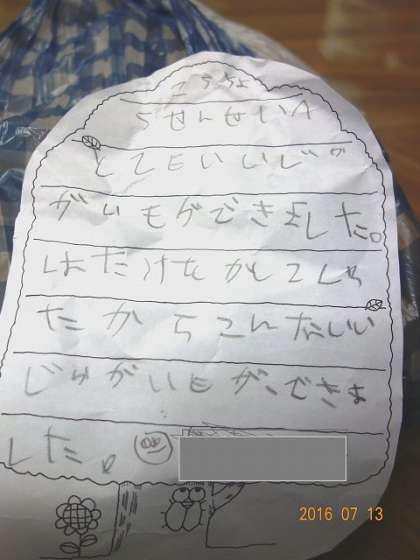 こうちょ
うせんせいへ
とてもいいじゃ
がいもができました。
はたけをかしてくれ
たからこんないい
じゃがいもができま
した。
2016 07 13